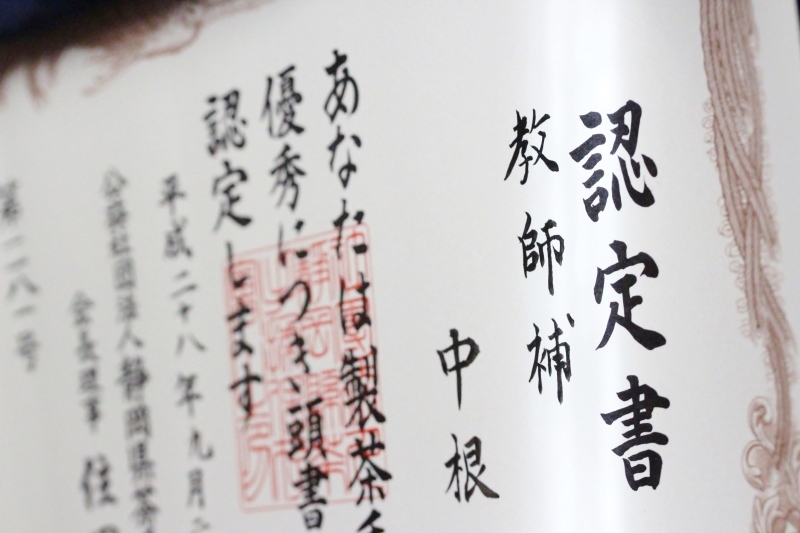 認定書
教師補
中根
あなたは製茶
優秀につき頭書
認定します
平成二十八年九月
公益社団法人静岡県茶
会長理事 住
第二八一号